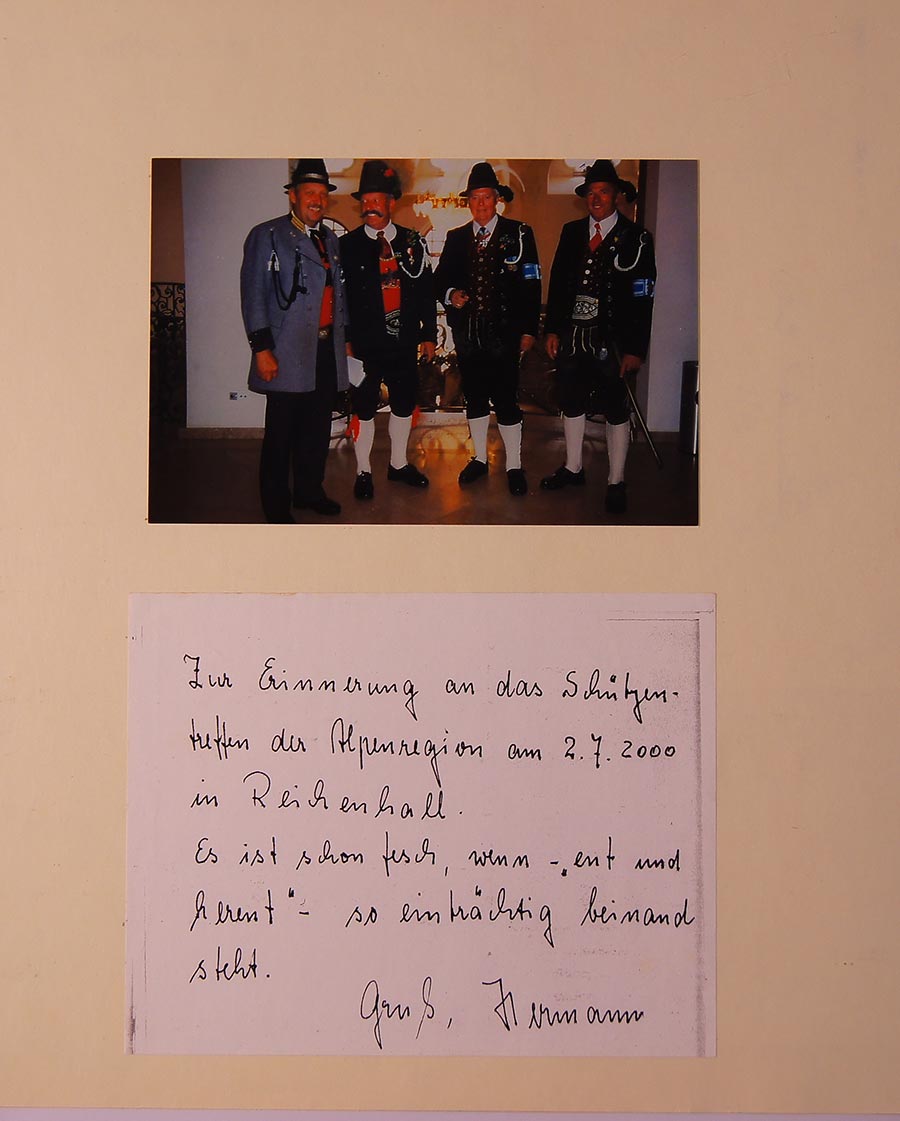 Zur Erinnerung an das Schützen-
treffen der Alpenregion am 2.7.2000
in Reichenhall.
Es ist schon fesch, wenn - „ent und
herent" - so einträchtig beinand
steht.
Gruß, Hermann